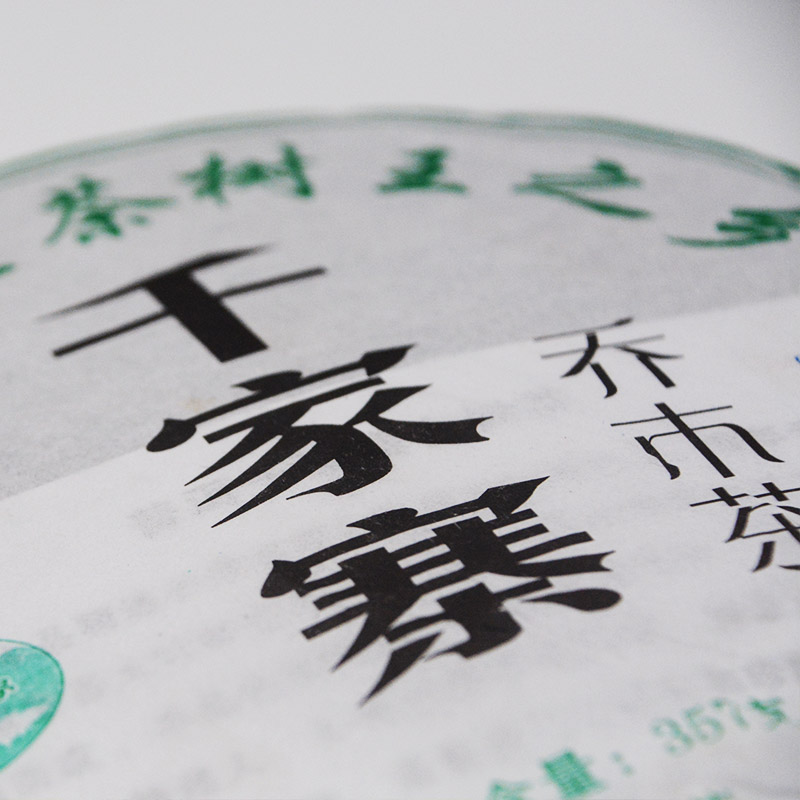 茶树王之乡
千家寨
乔木茶
含量：357克